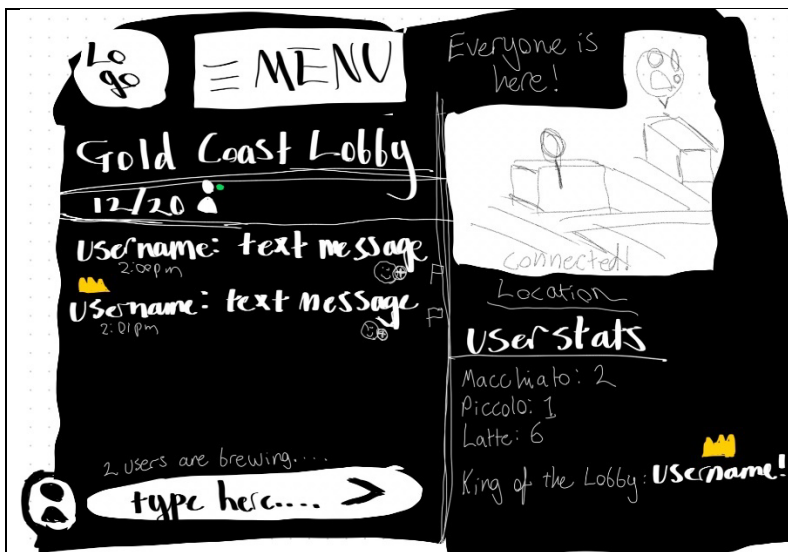 Logo
MENU
Gold Coast Lobby
12/20
username: text message
2:00pm
username: text message
2:01pm
2 users are brewing....
type here.... >
Everyone is
here!
connected!
Location
user stats
Macchiato: 2
Piccolo: 1
Latte: 6
King of the Lobby: username!